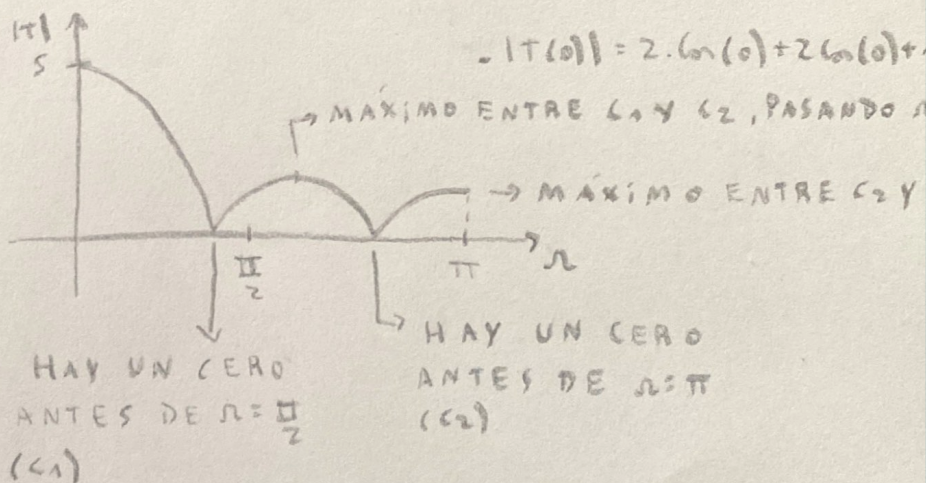 |T|
5
. |T(0)| = 2.Cos(0)+2Cos(0)+
→ MÁXIMO ENTRE C1 Y C2, PASANDO
→ MÁXIMO ENTRE C2 Y
π/2
π
Ω
HAY UN CERO
ANTES DE Ω=π/2
(C1)
HAY UN CERO
ANTES DE Ω=π
(C2)